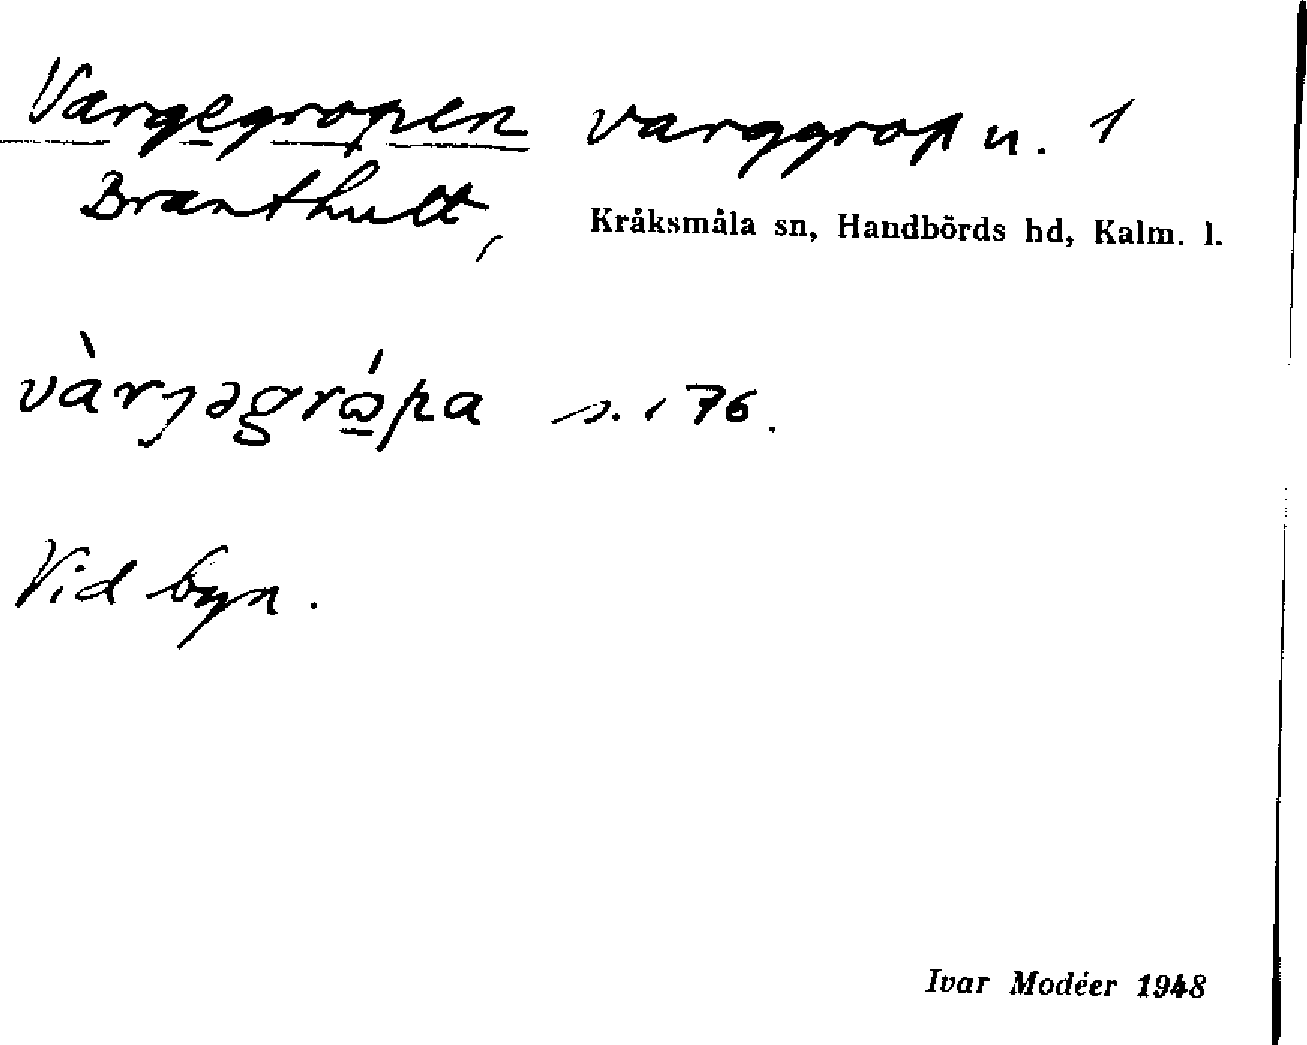 Vargegropen varggrop u. 1
Branthult, Kråksmåla sn, Handbörds hd, Kalm. l.
vàrɟəgrópa s. 176.
Vid byn.
Ivar Modéer 1948